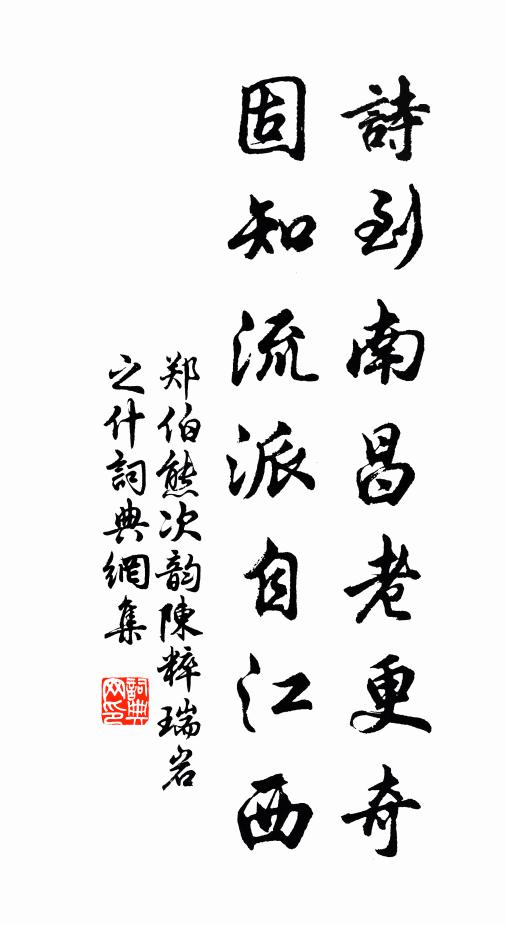 詩到南昌老更奇
固知流派自江西
郑伯熊次韵陳粹瑞岩
之什詞典網集
詞典
网印